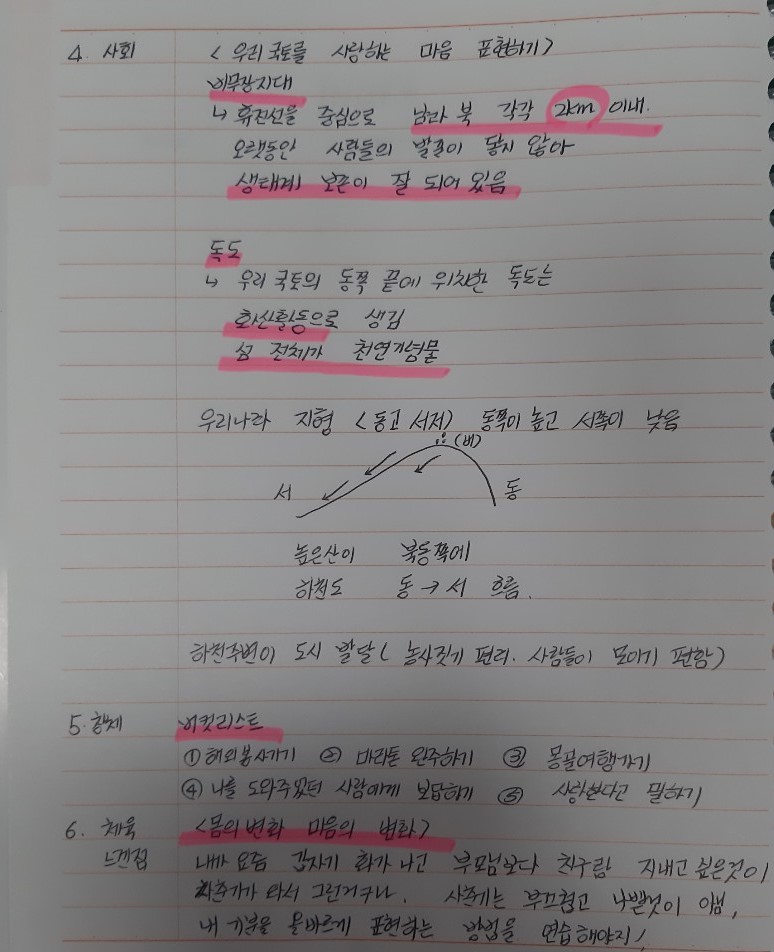 4. 사회 < 우리 국토를 사랑하는 마음 표현하기 >
비무장지대
↳ 휴전선을 중심으로 남과 북 각각 2km 이내.
오랫동안 사람들의 발길이 닿지 않아
생태계 보존이 잘 되어 있음
독도
↳ 우리 국토의 동쪽 끝에 위치한 독도는
화산활동으로 생김
섬 전체가 천연기념물
우리나라 지형 < 동고 서저 > 동쪽이 높고 서쪽이 낮음
(비)
서 동
높은산이 북동쪽에
하천도 동 → 서 흐름.
하천주변이 도시 발달 ( 농사짓기 편리. 사람들이 모이기 편함 )
5. 창체 버킷리스트
① 해외봉사가기 ② 마라톤 완주하기 ③ 몽골여행가기
④ 나를 도와주었던 사람에게 보답하기 ⑤ 사랑한다고 말하기
6. 체육 <몸의 변화 마음의 변화>
느낀점 내가 요즘 갑자기 화가 나고 부모님보다 친구랑 지내고 싶은것이
사춘기가 와서 그런거구나. 사춘기는 부끄럽고 나쁜것이 아님,
내 기분을 올바르게 표현하는 방법을 연습해야지!